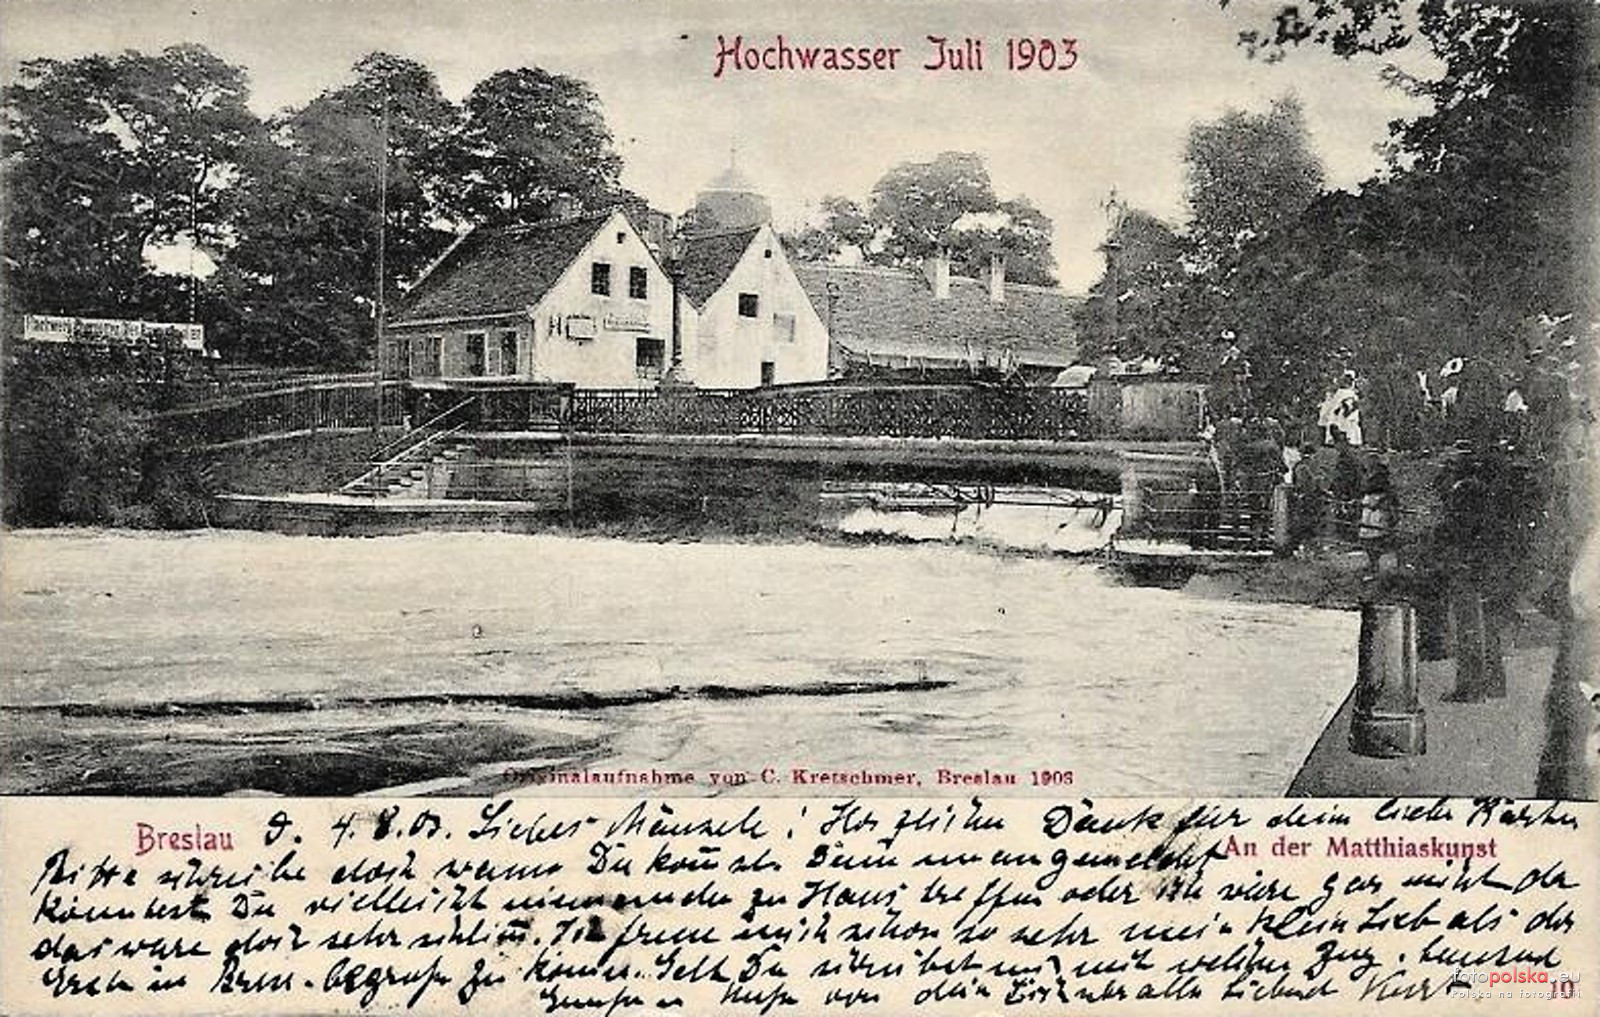 Hochwasser Juli 1903
Originalaufnahme von C. Kretschmer, Breslau 1903
Breslau
An der Matthiaskunst
4. 8. 03. Liebes Mäusele! Herzlichen Dank für dein liebes
Bitte schreibe doch wann Du kommst. Denn unangemeldet
könntest Du vielleicht niemanden zu Haus treffen oder ich wäre gar nicht da
das wäre doch sehr schlimm. Ich freue mich schon so sehr mein klein Lieb als der
Erste in Bresl. begrüßen zu können. Gelt Du schreibst mir mit welchem Zug. tausend
von dein Dich über alles liebend
fotopolska.eu
Polska na fotografii
10